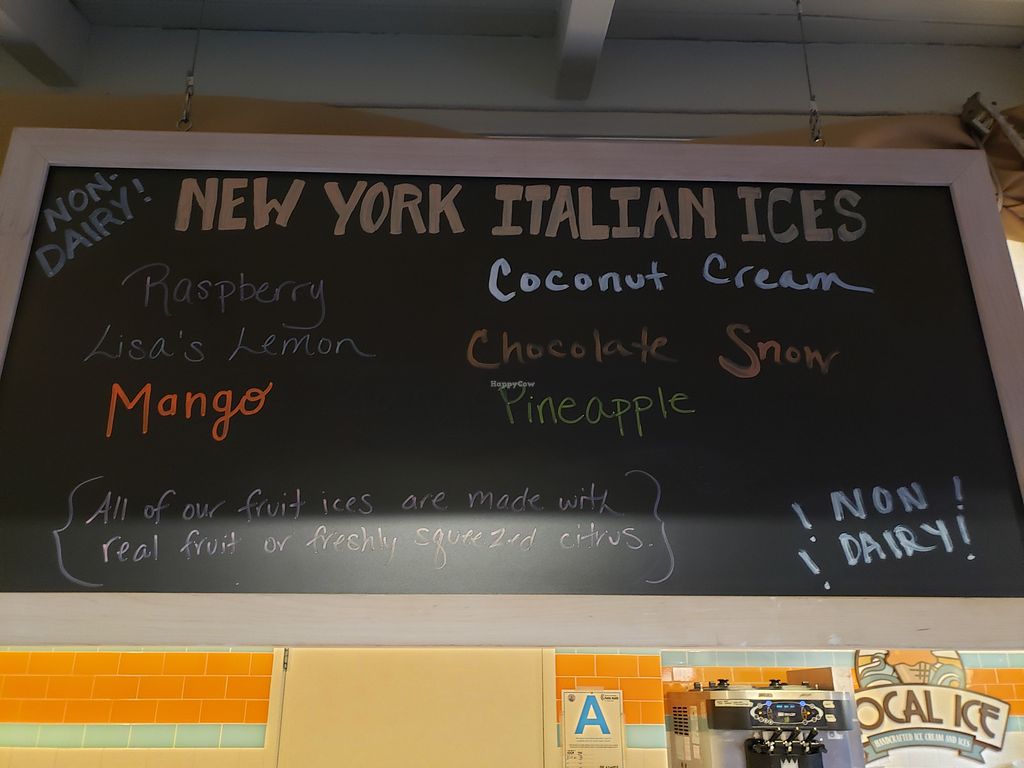 NON-
DAIRY!
NEW YORK ITALIAN ICES
Raspberry
Coconut Cream
Lisa's Lemon
Chocolate Snow
HappyCow
Mango
Pineapple
{All of our fruit ices are made with
real fruit or freshly squeezed citrus.}
¡ NON !
¡ DAIRY!
A
OCAL ICE
HANDCRAFTED ICE CREAM AND ICES